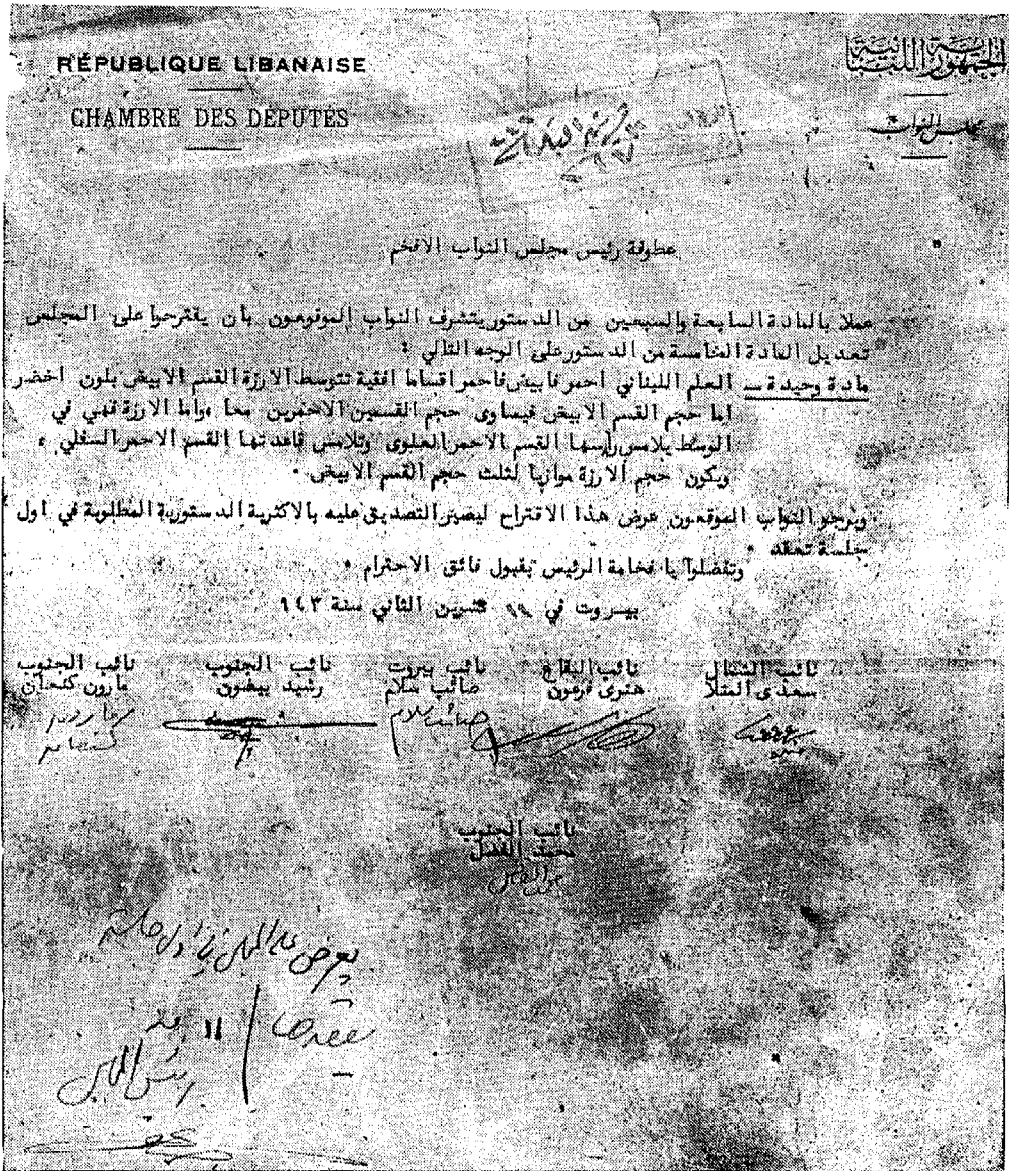 RÉPUBLIQUE LIBANAISE
الجمهورية اللبنانية
CHAMBRE DES DÉPUTÉS
مجلس النواب
عطوفة رئيس مجلس النواب الافخم
عملا بالمادة السابعة والسبعين من الدستور يتشرف النواب الموقعون بان يقترحوا على المجلس
تعديل المادة الخامسة من الدستور على الوجه التالي :
مادة وحيدة ـ العلم اللبناني احمر فابيض فاحمر اقساما افقية تتوسط الارزة القسم الابيض بلون اخضر
اما حجم القسم الابيض فيساوى حجم القسمين الاحمرين معا ،واما الارزة فهي في
الوسط يلامس راسها القسم الاحمر العلوى وتلامس قاعدتها القسم الاحمر السفلي ،
ويكون حجم الارزة موازيا لثلث حجم القسم الابيض .
ويرجو النواب الموقعون عرض هذا الاقتراح ليصير التصديق عليه بالاكثرية الدستورية المطلوبة في اول
جلسة تعقد .
وتفضلوا يا فخامة الرئيس بقبول فائق الاحترام .
بيروت في ١١ تشرين الثاني سنة ٩٤٣
نائب الشمال نائب البقاع نائب بيروت نائب الجنوب نائب الجنوب
سعدى المنلا هنرى فرعون صائب سلام رشيد بيضون مارون كنعان
صائب سلام مارون
كنعان
نائب الجنوب
محمد الفضل
يعرض على المجلس في اول جلسة
يعقدها
١١
رئيس المجلس